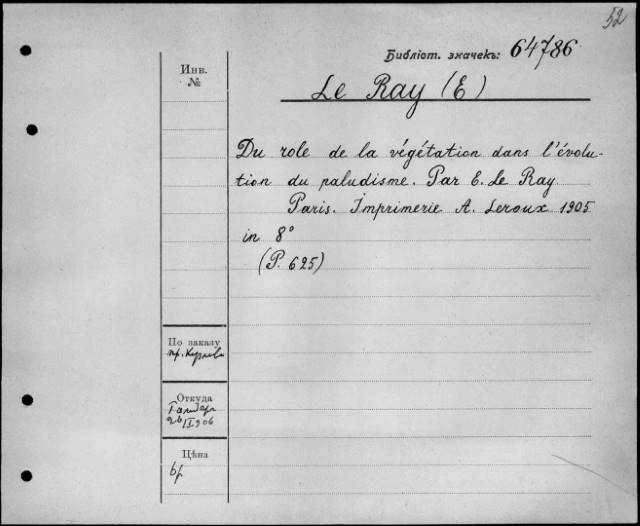 52
Библіот. значекъ: 64786
Инв.
№
Le Ray (E)
Du role de la végétation dans l'évolu-
tion du paludisme. Par E. Le Ray
Paris. Imprimerie A. Leroux 1905
in 8°
(P. 625)
По заказу
пр.
Откуда
26/I 906
Цѣна
6р